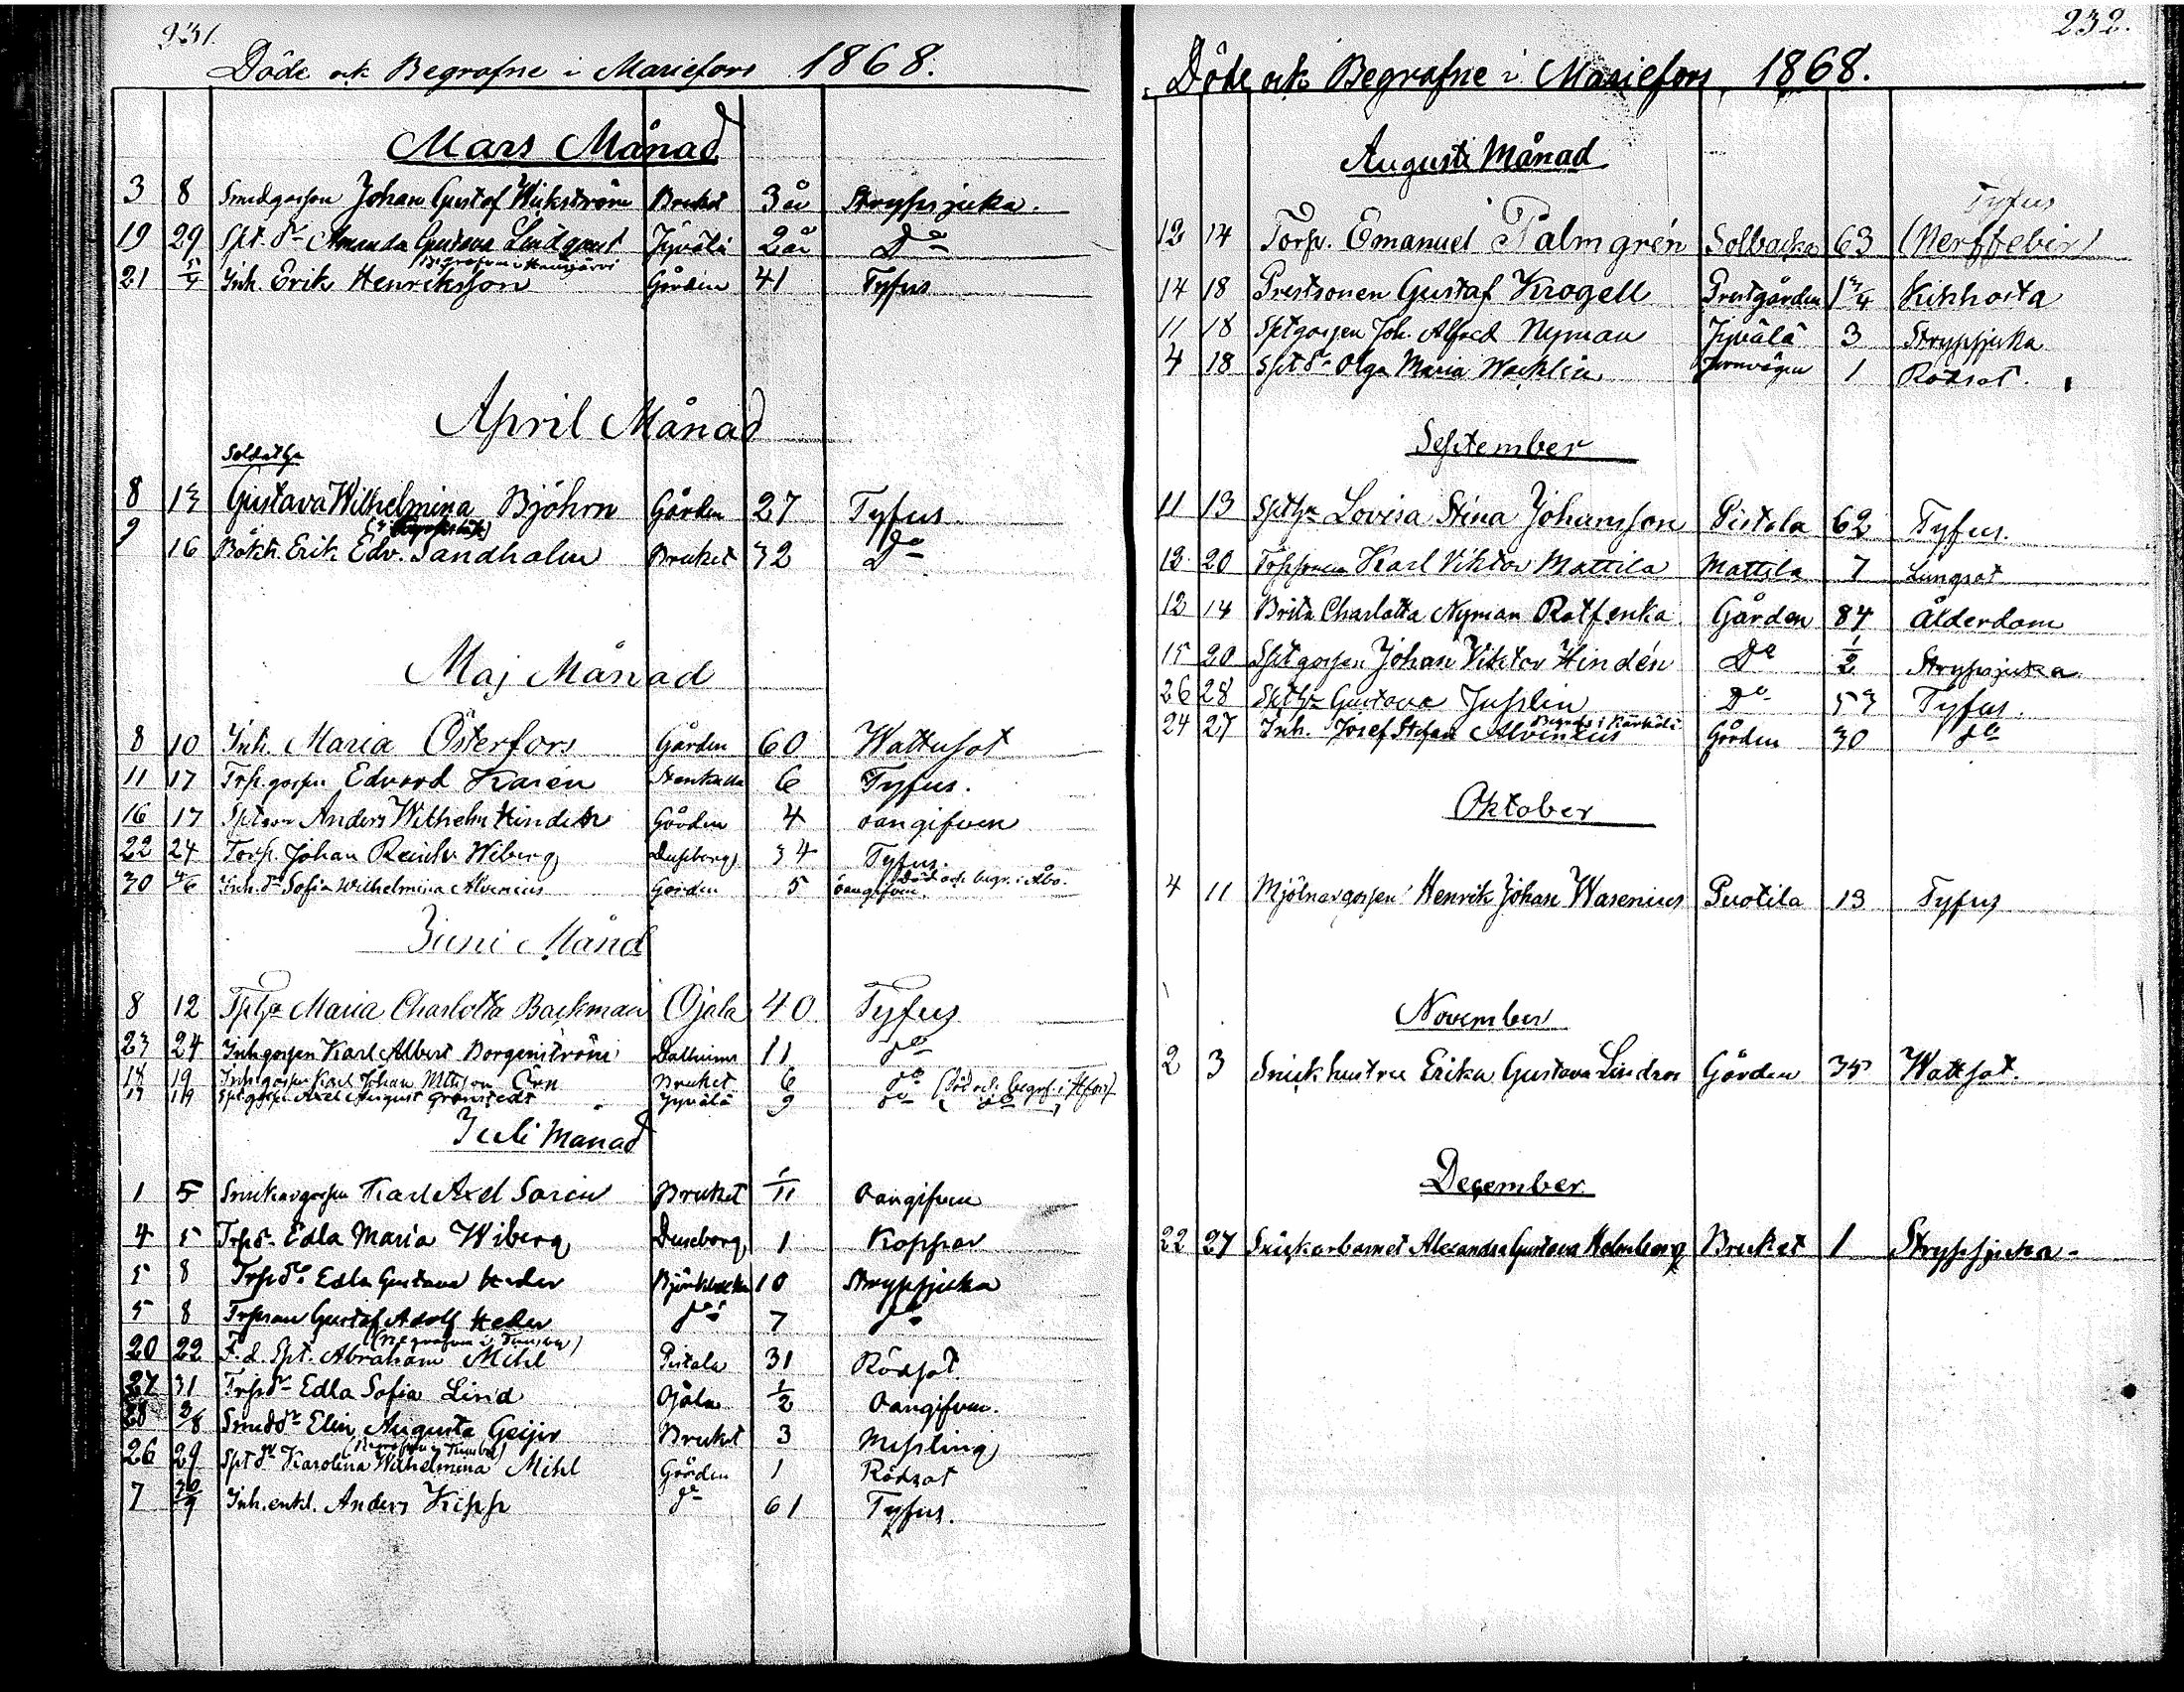 231.
Döde och Begrafne i Mariefors 1868.
Mars Månad
3 8 Smedgossen Johan Gustaf Wickström Bruket 3 år Strypsjuka.
19 29 Spt. dr Amanda Gustava Lindqvist Jyvälä 2 år Do
Begrafven i Hausjärvi
21 5/4 Inh. Erik Henriksson Gården 41 Tyfus
April Månad
Soldathu
8 13 Gustava Wilhelmina Björn Gården 27 Tyfus
9 16 Bokh. Erik Edv. Sandholm Bruket 32 Do
Maj Månad
8 10 Inh. Maria Österfors Gården 60 Wattusot
11 17 Trp.gossen Edvard Karén 6 Tyfus.
16 17 Sptson Anders Wilhelm Hindén Gården 4 oangifven
22 24 Torp. Johan Wiberg Duseborg 34 Tyfus.
Död och begr. i Åbo.
30 4/6 Inh. dr Sofia Wilhelmina Alvenius Gården 5 oangifven
Juni Månd
8 12 Tpthu Maria Charlotta Backman Ojala 40 Tyfus
23 24 Inhgossen Karl Albert Borgenström 11 do
18 19 Inhgossen Karl Johan Mttsson Örn Bruket 6 do (död och begrf. i Hfors)
17 19 Sptgossen Axel August Grönstedt Jyvälä 9 do ( do )
Juli Månad
1 5 Snickargossen Karl Axel Sorén Bruket 1/11 Oangifven
4 5 Trpdr. Edla Maria Wiberg Duseborg 1 Koppor
5 8 Trpdr Edla Gustava Heder Björkbacka 10 Strypsjuka
5 8 Trpson Gustaf Adolf Heder do 7 do
(Begrafven i Tusby)
20 22 F.d. Spt. Abraham Mihl Pistala 31 Rödsot
27 31 Trpdr Edla Sofia Lind Ojala 1/2 Oangifven.
28 2/8 Smeddr Elin Augusta Geijer Bruket 3 Messling
(Begrafven i Tusby)
26 29 Sptdr Karolina Wilhelmina Mihl Gården 1 Rödsot
7 30/9 Inh.enkl. Anders Kipp do 61 Tyfus.
232.
Döde och Begrafne i Mariefors 1868.
Augusti Månad
Tyfus
12 14 Torp. Emanuel Palmgrén Solbacka 63 (Nerffeber)
14 18 Prestsonen Gustaf Krogell Prestgården 1 3/4 Kikhosta
11 18 Sptgossen Joh. Alfred Nyman Jyvälä 3 Strypsjuka
4 18 Sptdr Olga Maria Wacklin Jernvägen 1 Rödsot.
September
11 13 Spthu Lovisa Stina Johansson Pistala 62 Tyfus.
12 20 Torpsonen Karl Viktor Mattila Mattila 7 Lungsot
12 14 Brita Charlotta Nyman Rotfenka Gården 84 Ålderdom
15 20 Sptgossen Johan Viktor Hindén Do 1/2 Strypsjuka
26 28 Spthu Gustava Jusslin Do 53 Tyfus.
Begrafv. i Kärkölä
24 27 Inh. Josef Stefan Alvenius Gården 30 do
Oktober
4 11 Mjölnargossen Henrik Johan Wasenius Puotila 13 Tyfus
November
2 3 Snickhustru Erika Gustava Lindros Gården 35 Wattsot.
December
22 27 Snickarbarnet Alexandra Gustava Holmberg Bruket 1 Strypsjuka